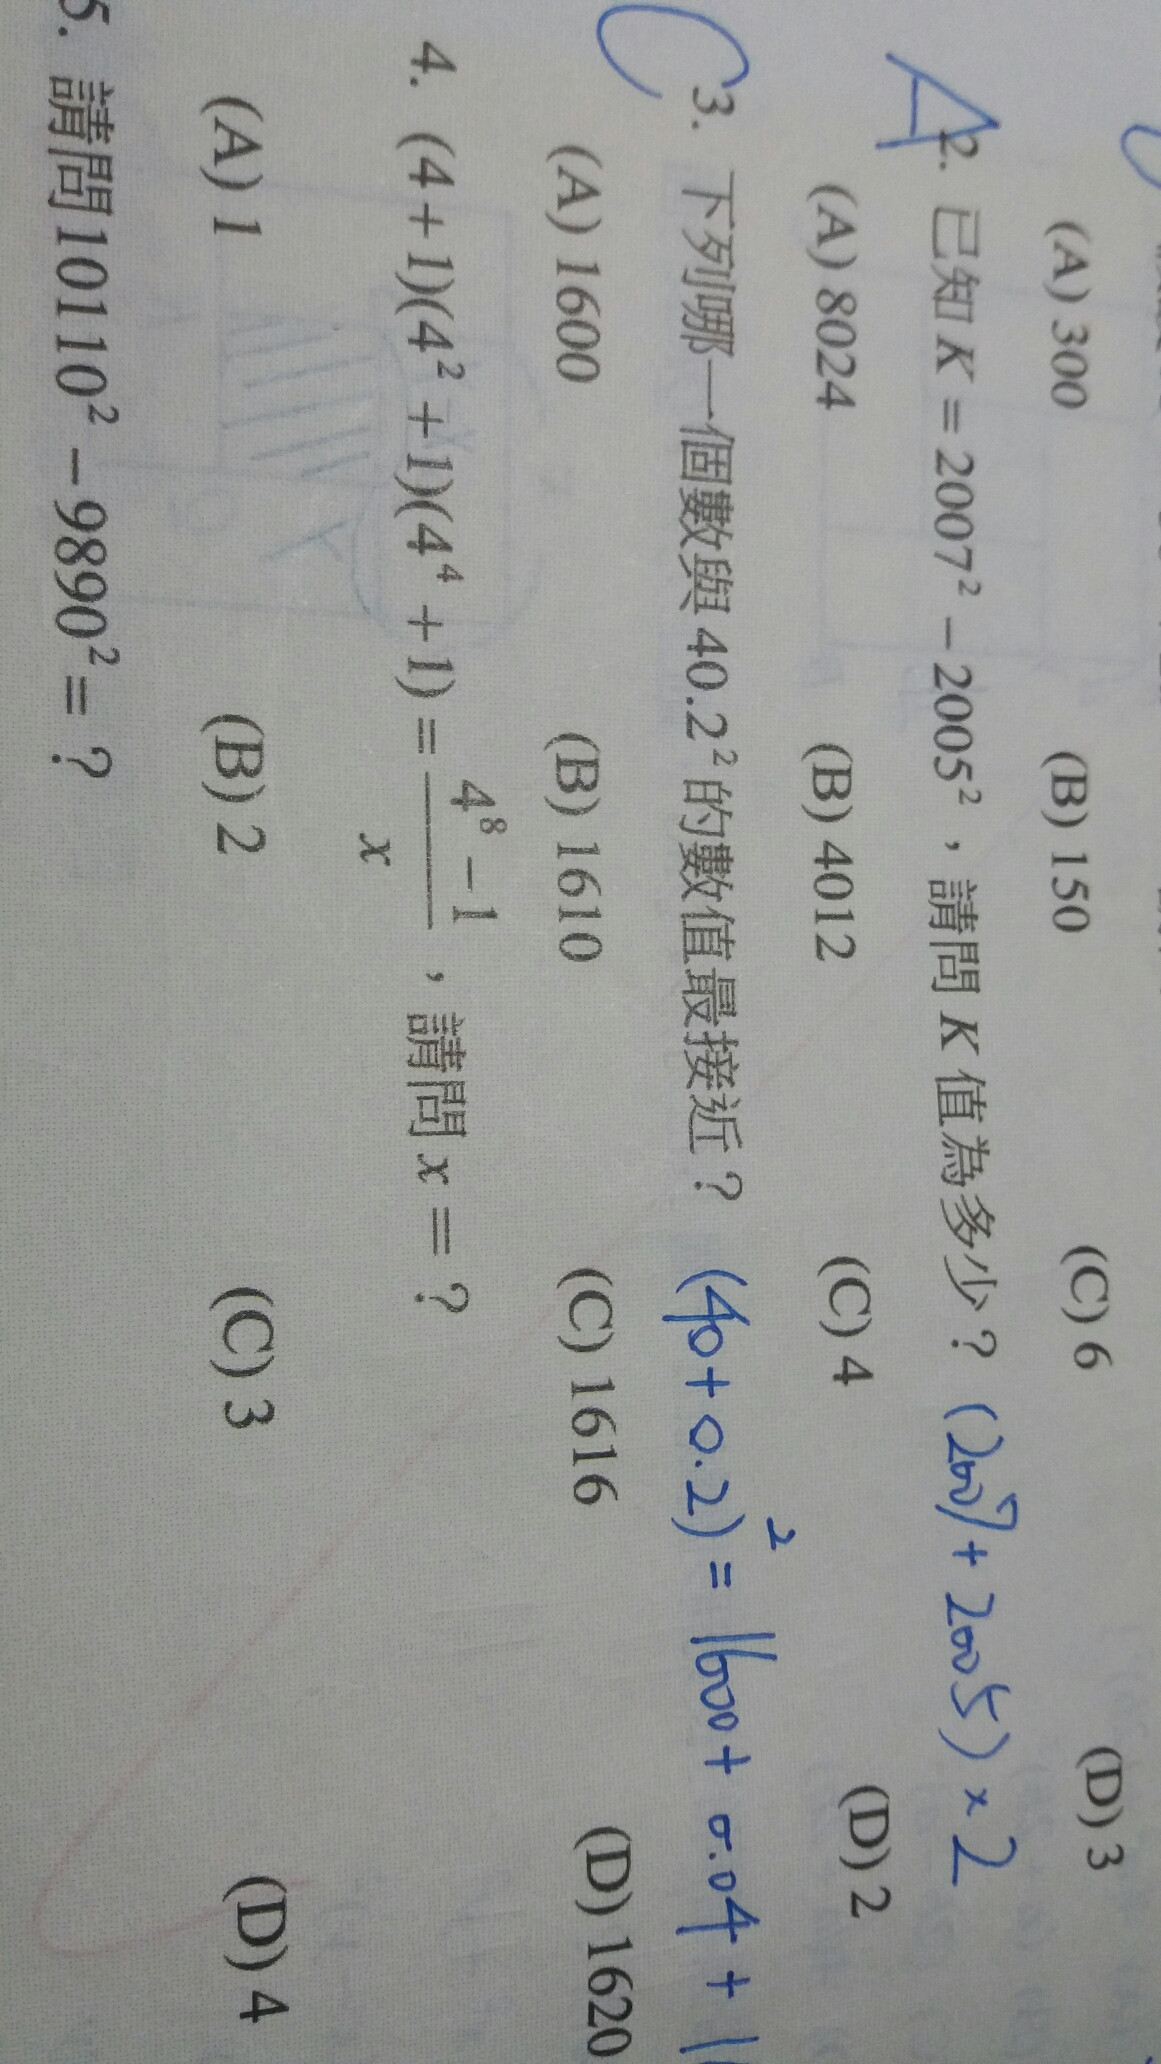 (A) 300 (B) 150 (C) 6 (D) 3
A 2. 已知 K = 2007² − 2005²，請問 K 值為多少？ (2007 + 2005) × 2
(A) 8024 (B) 4012 (C) 4 (D) 2
C 3. 下列哪一個數與 40.2² 的數值最接近？ (40 + 0.2)² = 1600 + 0.04 +
(A) 1600 (B) 1610 (C) 1616 (D) 1620
4. (4 + 1)(4² + 1)(4⁴ + 1) = (4⁸ − 1)/x，請問 x = ？
(A) 1 (B) 2 (C) 3 (D) 4
5. 請問 10110² − 9890² = ？